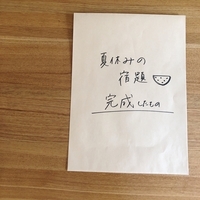 夏休みの
宿題
完成したもの